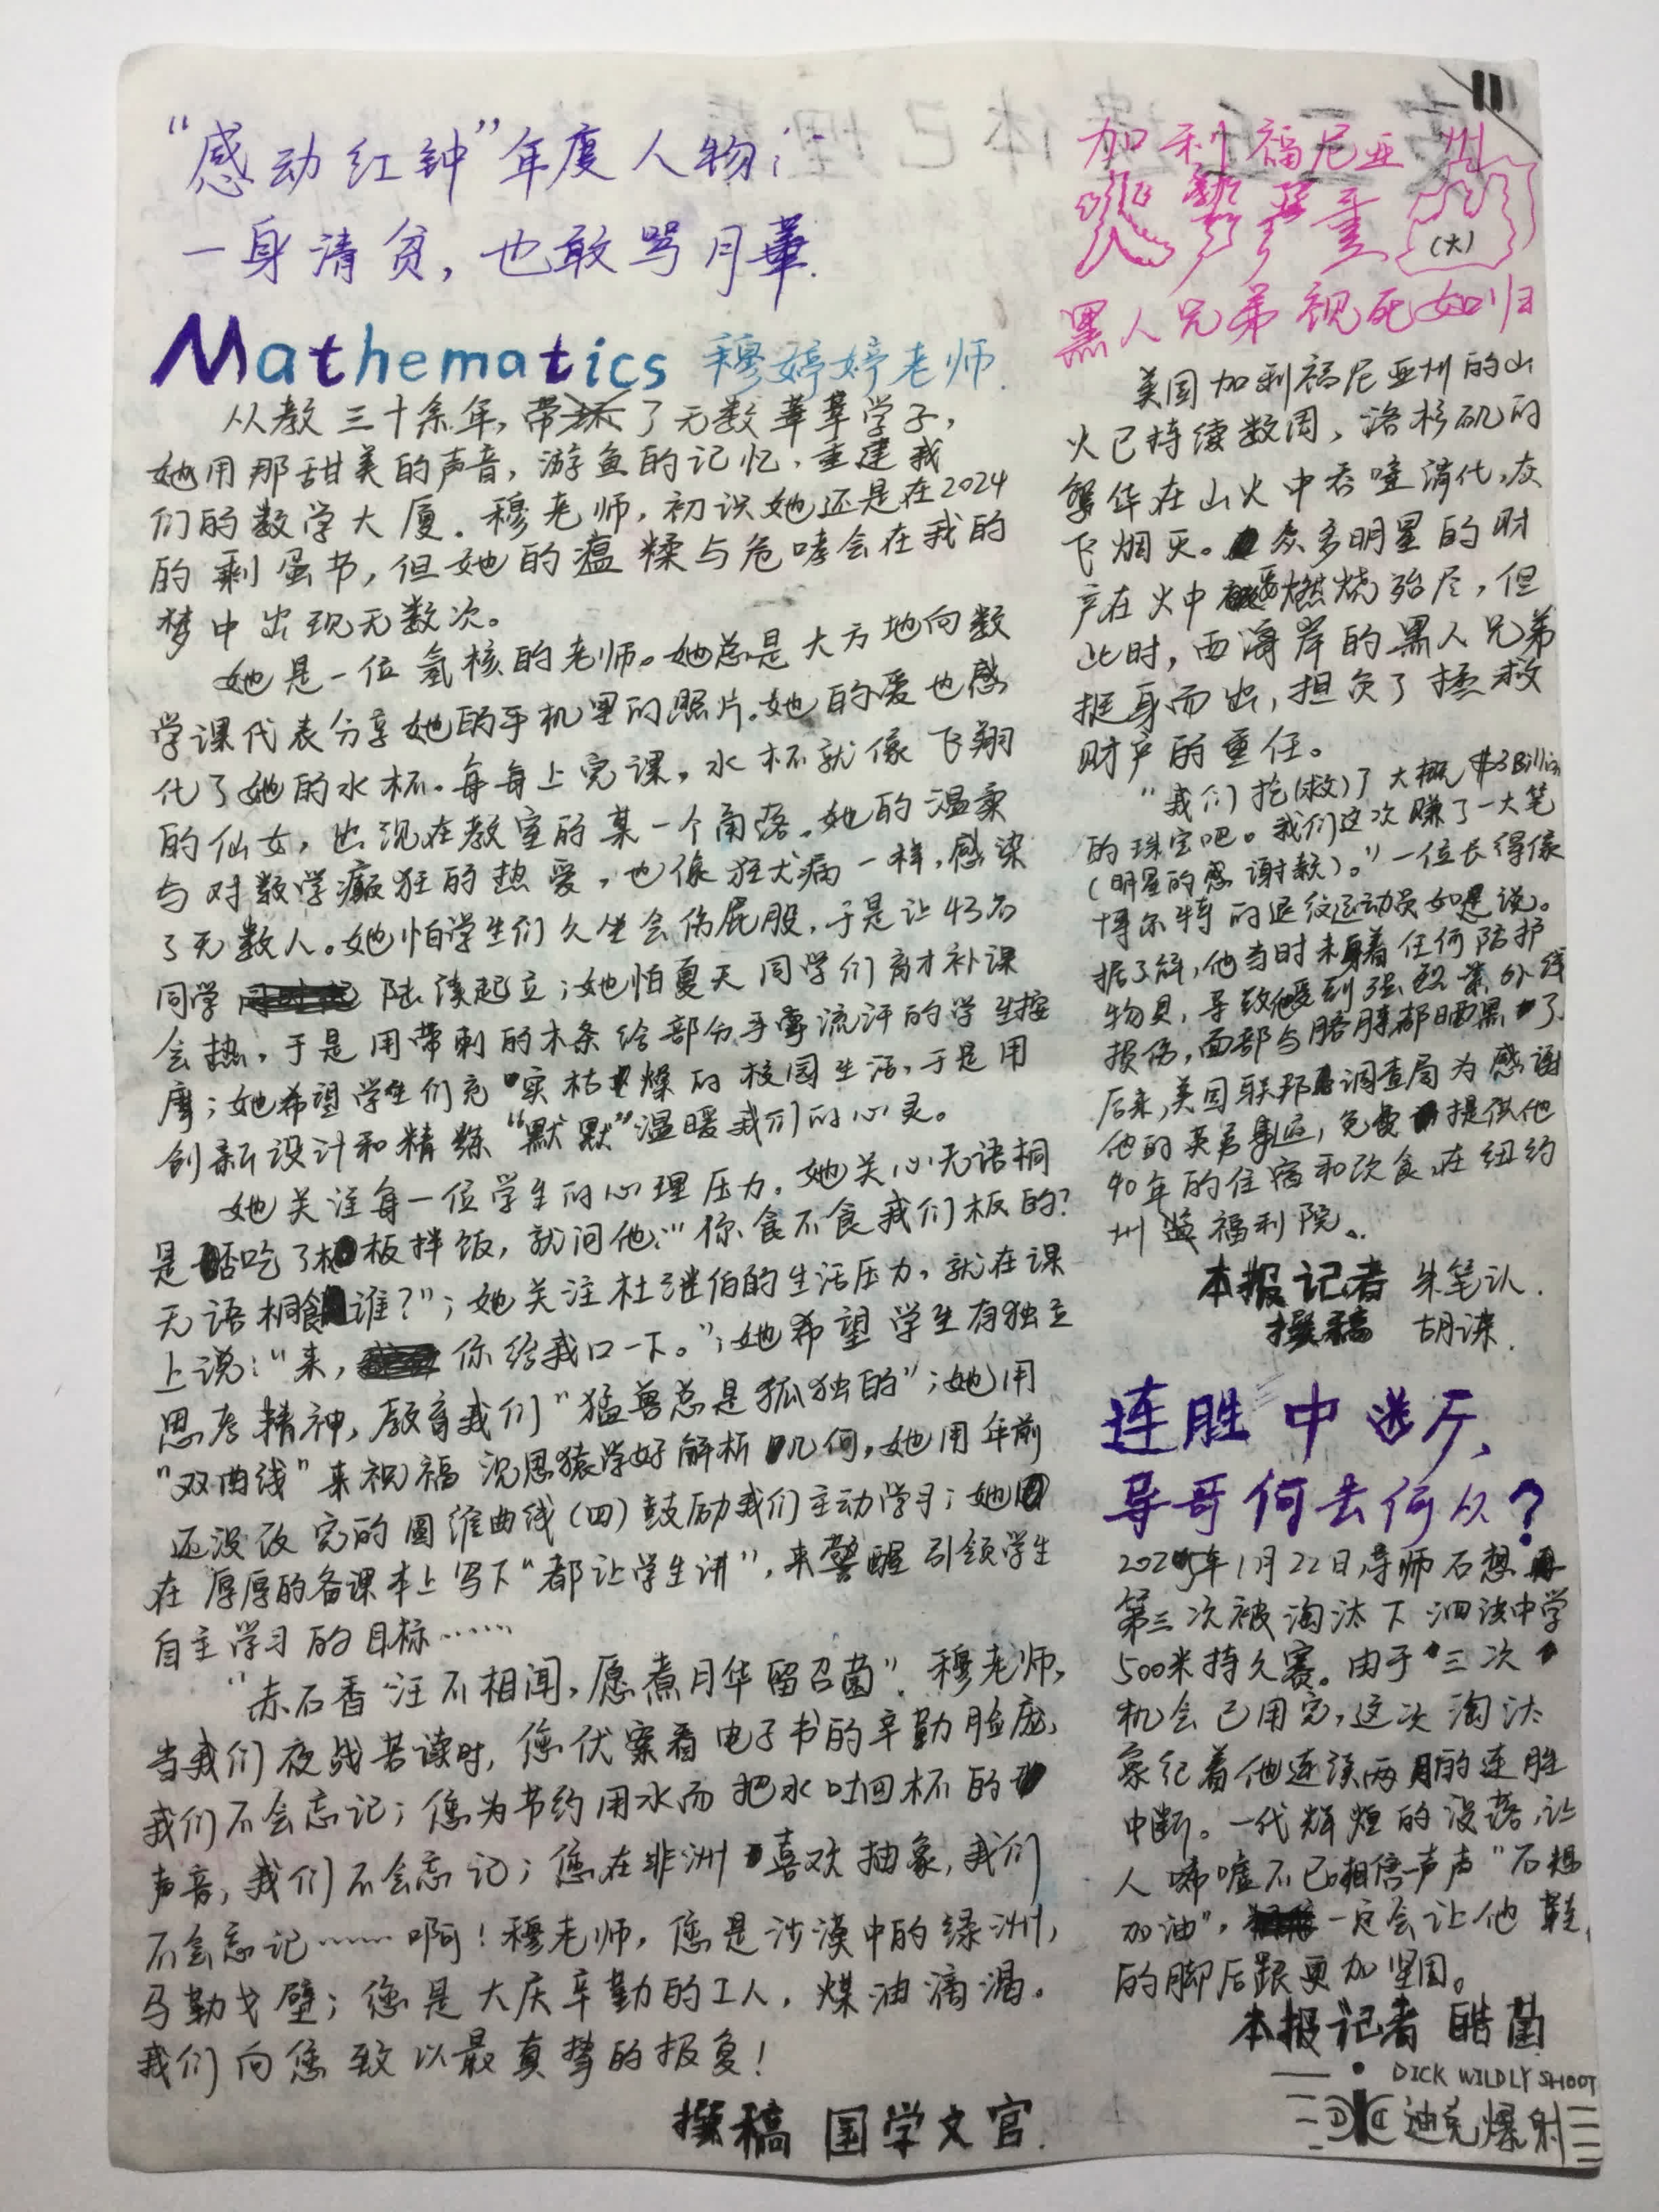 11
“感动红钟”年度人物：
一身清贫，也敢骂月華.
Mathematics 穆婷婷老师.
从教三十余年，带坏了无数莘莘学子，
她用那甜美的声音，游鱼的记忆，重建我
们的数学大厦．穆老师，初识她还是在2024
的剩蛋节，但她的瘟糅与危哮会在我的
梦中出现无数次。
她是一位氢核的老师。她总是大方地向数
学课代表分享她的手机里的照片。她的爱也感
化了她的水杯。每每上完课，水杯就像飞翔
的仙女，出现在教室的某一个角落。她的温柔
与对数学癫狂的热爱，也像狂犬病一样，感染
了无数人。她怕学生们久坐会伤屁股，于是让43名
同学陆续起立；她怕夏天同学们育才补课
会热，于是用带刺的木条给部分手掌流汗的学生按
摩；她希望学生们充实枯燥的校园生活，于是用
创新设计和精练“默默”温暖我们的心灵。
她关注每一位学生的心理压力。她关心无语桐
是否吃了板拌饭，就问他：“你食不食我们板的？
无语桐食谁？”；她关注杜继伯的生活压力，就在课
上说：“来，你给我口一下。”；她希望学生有独立
思考精神，教育我们“猛兽总是孤独的”；她用
“双曲线”来祝福沈思猿学好解析几何，她用年前
还没改完的圆锥曲线(四)鼓励我们主动学习；她
在厚厚的备课本上写下“都让学生讲”，来警醒引领学生
自主学习的目标……
“赤石香汪不相闻，愿煮月华留召菌”．穆老师，
当我们夜战苦读时，您伏案看电子书的辛勤脸庞，
我们不会忘记；您为节约用水而把水吐回杯的
声音，我们不会忘记；您在非洲喜欢抽象，我们
不会忘记……啊！穆老师，您是沙漠中的绿洲，
马勒戈壁；您是大庆辛勤的工人，煤油滴滴。
我们向您致以最真挚的报复！
撰稿 国学文官.
加利福尼亚州
火势严重
(大)
黑人兄弟视死如归
美国加利福尼亚州的山
火已持续数周，洛杉矶的
繁华在山火中吞噬消化，灰
飞烟灭。众多明星的财
产在火中燃烧殆尽，但
此时，西海岸的黑人兄弟
挺身而出，担负了拯救
财产的重任。
“我们抢(救)了大概$3Billion
的珠宝吧。我们这次赚了一大笔
(明星的感谢款)。”一位长得像
博尔特的退役运动员如是说。
据了解，他当时未身着任何防护
物具，导致他受到强烈紫外线
损伤，面部与胳膊都晒黑了.
后来，美国联邦调查局为感谢
他的英勇事迹，免费提供他
40年的住宿和饮食，在纽约
州福利院。
本报记者 朱笔认.
撰稿 胡诌.
连胜中断，
导哥何去何从？
2025年1月22日，导师石想
第三次被淘汰下泗洪中学
500米持久赛。由于三次
机会已用完，这次淘汰
象征着他连续两月的连胜
中断。一代辉煌的没落，让
人唏嘘不已。相信一声声“石想
加油”，一定会让他鞋
的脚后跟更加坚固。
本报记者 皓菌
DICK WILDLY SHOOT
迪克爆射